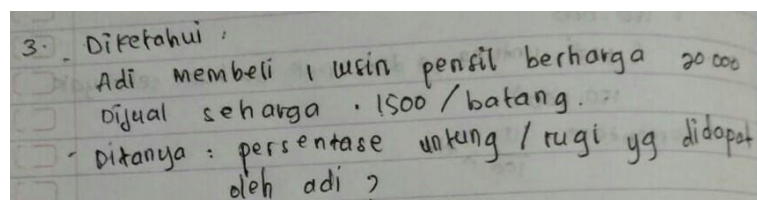 3. - Diketahui :
Adi membeli 1 lusin pensil berharga 20 000
Dijual seharga . 1500 / batang .
- Ditanya : persentase untung / rugi yg didapat
oleh adi ?